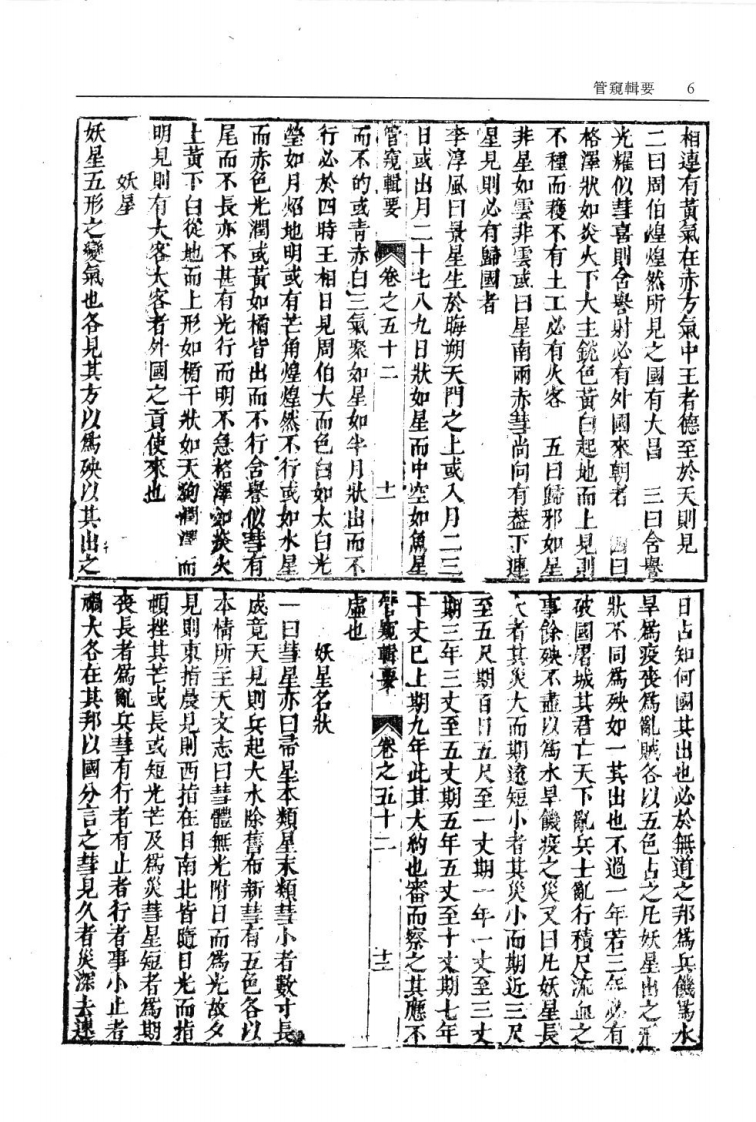 管窺輯要 6
相連有黃氣在赤方氣中王者德至於天則見
二曰周伯煌煌然所見之國有大昌 三曰含譽
光耀似彗喜則含譽射必有外國來朝者 四曰
格澤狀如炎火下大上銳色黃白起地而上見則
不種而穫不有土工必有大客 五曰歸邪如星
非星如雲非雲或曰星南兩赤彗尚向有蓋下連
星見則必有歸國者
李淳風曰景星生於晦朔天門之上或入月二三
日或出月二十七八九日狀如星而中空如魚星
管窺輯要 卷之五十二 十一
而不的或青赤白三氣聚如星如半月狀出而不
行必於四時王相日見周伯大而色白如太白光
瑩如月炤地明或有芒角煌煌然不行或如水星
而赤色光潤或黃如橘皆出而不行含譽似彗有
尾而不長亦不甚有光行而明不急格澤如炎火
上黃下白從地而上形如楯干狀如天狗潤澤而
明見則有大客大客者外國之貢使來也
妖星
妖星五形之變氣也各見其方以爲殃以其出之
日占知何國其出也必於無道之邦爲兵饑爲水
旱爲疫喪爲亂賊各以五色占之凡妖星出之形
狀不同爲殃如一其出也不過一年若三年必有
破國屠城其君亡天下亂兵士亂行積尺流血之
事餘殃不盡以爲水旱饑疫之災又曰凡妖星長
大者其災大而期遠短小者其災小而期近三尺
至五尺期百日五尺至一丈期一年一丈至三丈
期三年三丈至五丈期五年五丈至十丈期七年
十丈已上期九年此其大約也審而察之其應不
管窺輯要 卷之五十二 十二
虛也
妖星名狀
一曰彗星亦曰帚星本類星末類彗小者數寸長
或竟天見則兵起大水除舊布新彗有五色各以
本情所主天文志曰彗體無光附日而爲光故夕
見則東指晨見則西指在日南北皆隨日光而指
頓挫其芒或長或短光芒及爲災彗星短者爲期
喪長者爲亂兵彗有行者有止者行者事小止者
禍大各在其邦以國分言之彗見久者災深去速